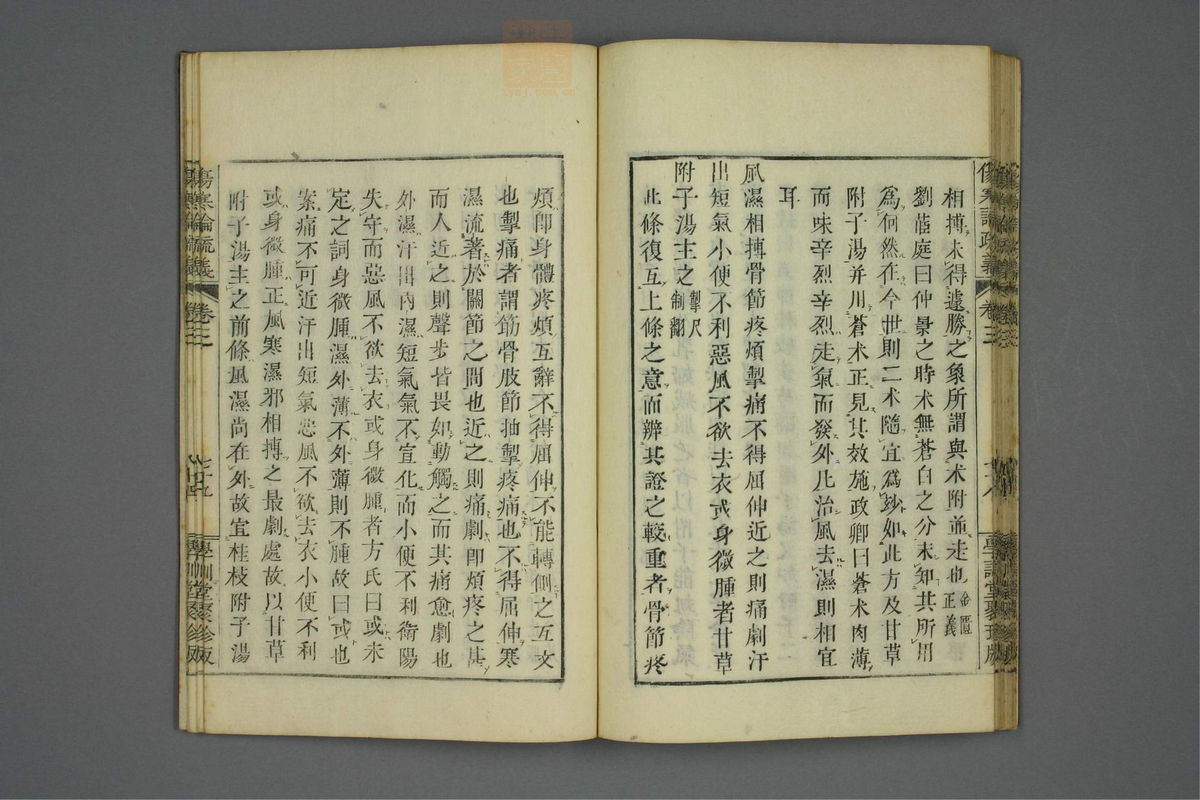 相搏未得遽勝之象所謂與术附並走也金匱正義
劉茝庭曰仲景之時术無蒼白之分未知其所用
爲何然在今世則二术隨宜爲妙如此方及甘草
附子湯并用蒼术正見其效施政卿曰蒼术肉薄
而味辛烈辛烈走氣而發外凡治風去濕則相宜
耳
風濕相搏骨節疼煩掣痛不得屈伸近之則痛劇汗
出短氣小便不利惡風不欲去衣或身微腫者甘草
附子湯主之掣尺制翻
此條復互上條之意而辨其證之較重者骨節疼
傷寒論疏義 卷三 學訓堂聚珍版
煩卽身體疼煩互辭不得屈伸不能轉側之互文
也掣痛者謂筋骨肢節抽掣疼痛也不得屈伸寒
濕流著於關節之間也近之則痛劇卽煩疼之甚
而人近之則聲步皆畏如動觸之而其痛愈劇也
外濕汗出內濕短氣氣不宣化而小便不利衛陽
失守而惡風不欲去衣或身微腫者方氏曰或未
定之詞身微腫濕外薄不外薄則不腫故曰或也
案痛不可近汗出短氣惡風不欲去衣小便不利
或身微腫正風寒濕邪相搏之最劇處故以甘草
附子湯主之前條風濕尚在外故宜桂枝附子湯
傷寒論疏義 卷三 學訓堂聚珍版